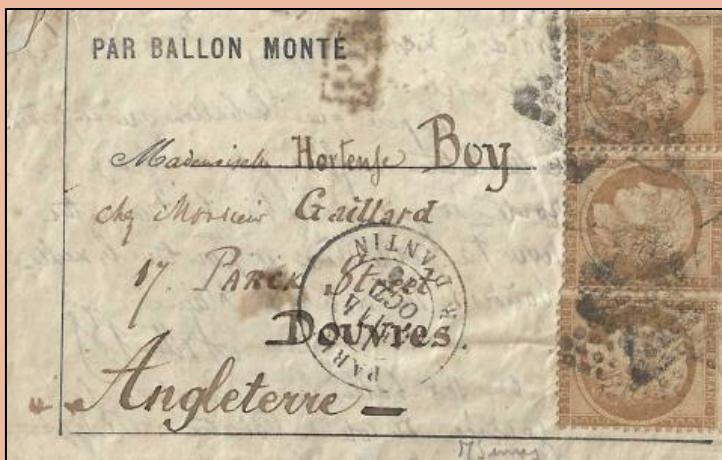 PAR BALLON MONTÉ
Mademoiselle Hortense Boy
chez Monsieur Gaillard
17. PARCK Street
Douvres.
Angleterre
PARIS
R. D'ANTIN
OCT.